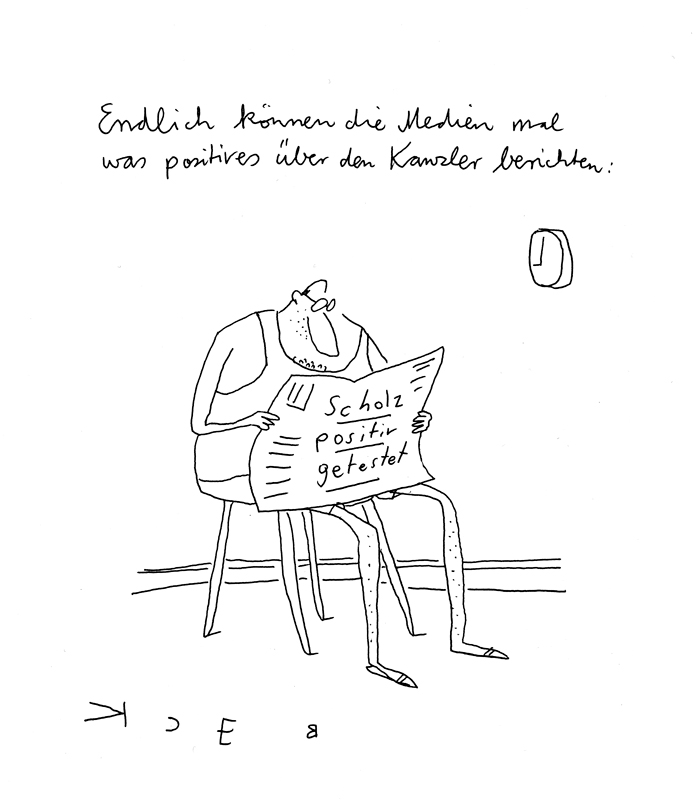 Endlich können die Medien mal
was positives über den Kanzler berichten:
Scholz
positiv
getestet